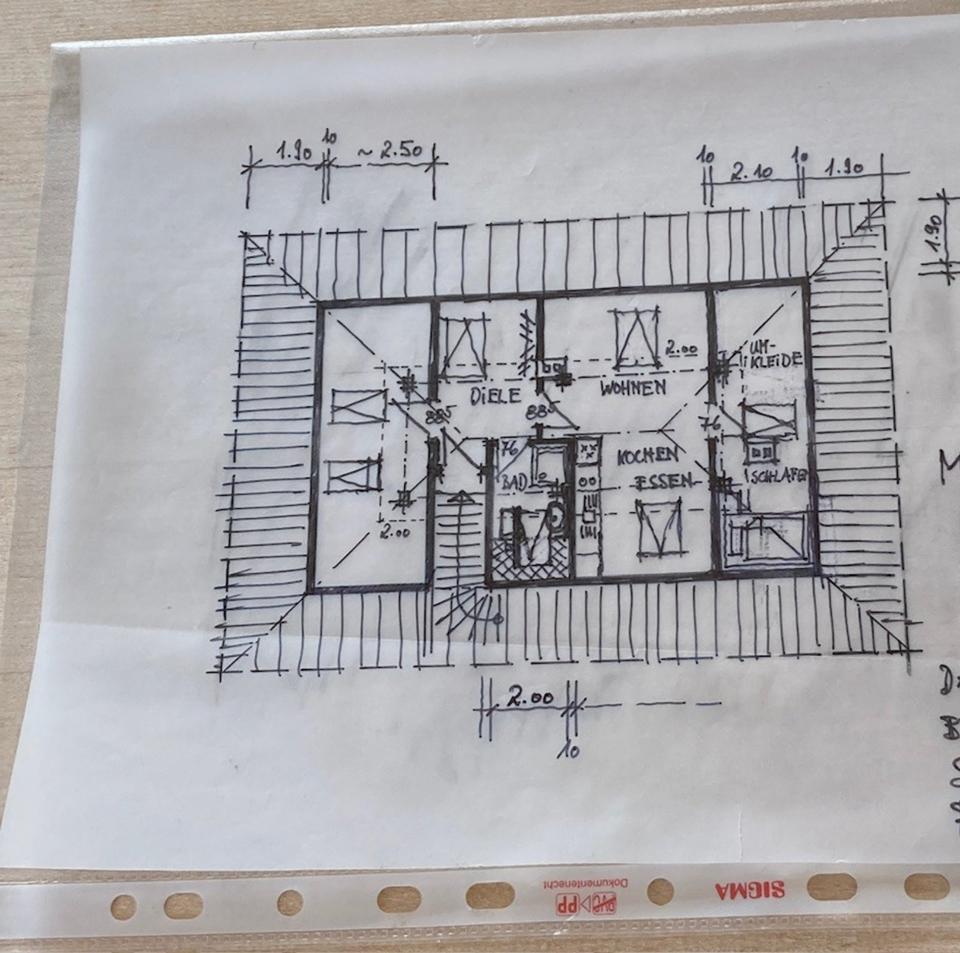 10
1.90
~ 2.50
10
2.10
10
1.90
1.90
2.00
UM-
KLEIDE
DIELE
WOHNEN
88⁵
88⁵
76
76
KOCHEN
BAD
ESSEN
SCHLAFEN
2.00
2.00
10
Dokumentenecht
PVC PP
SIGMA